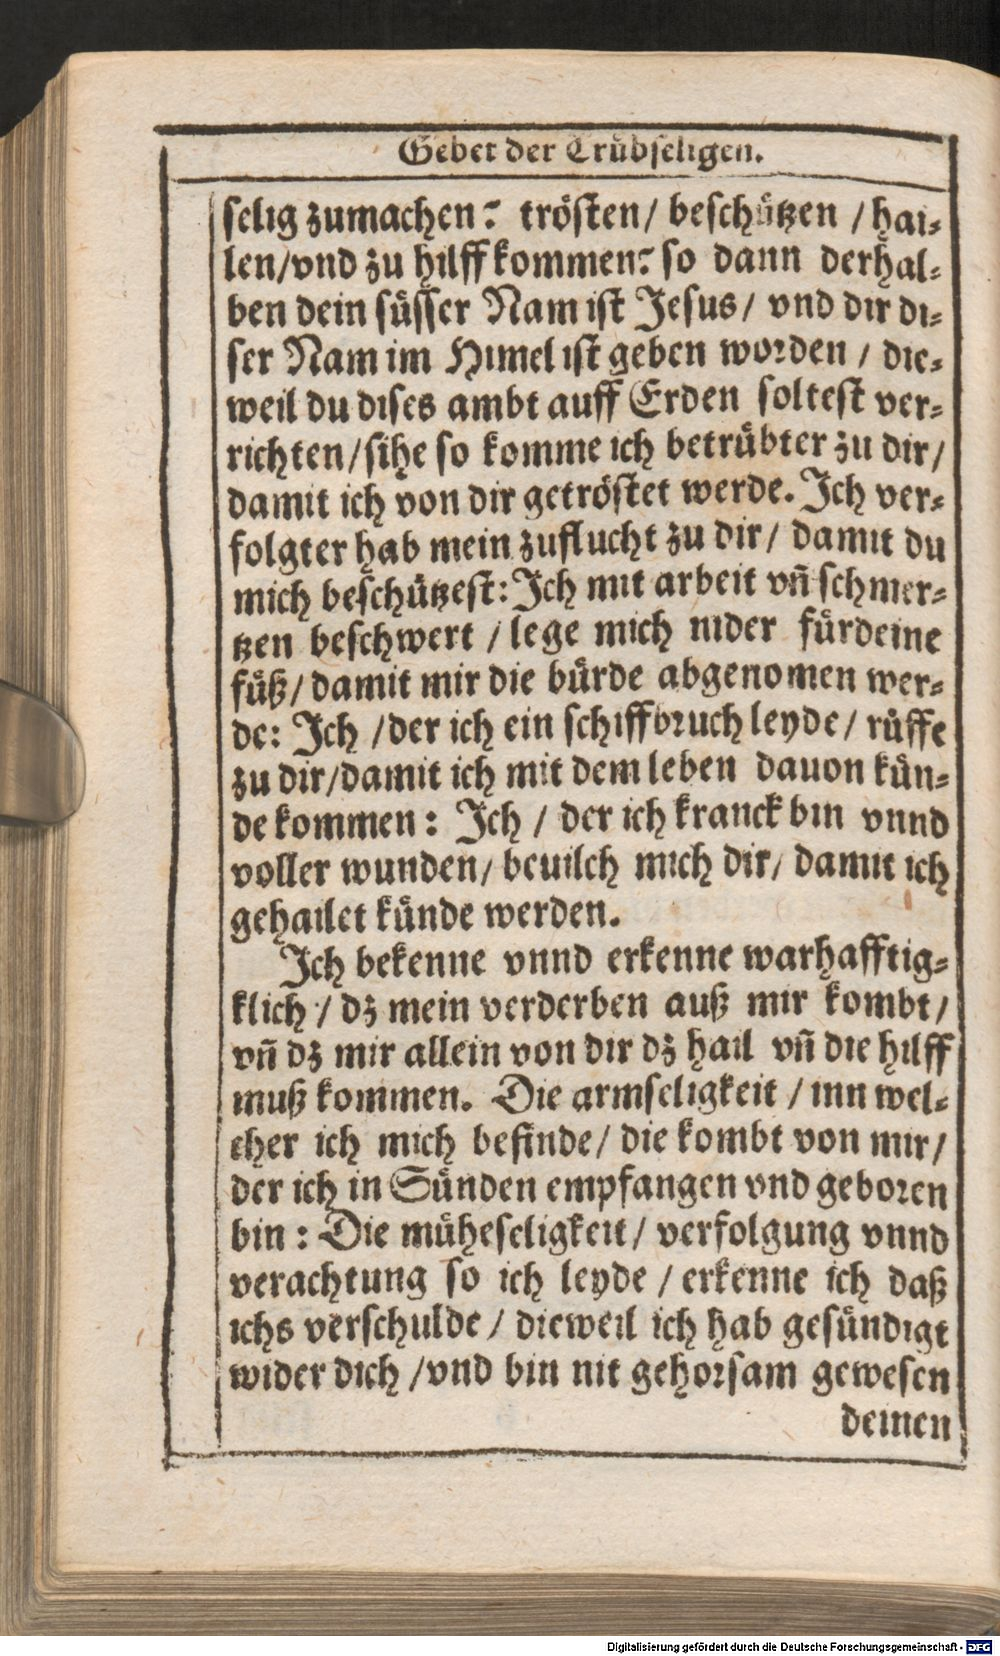 Gebet der Trübseligen.
selig zumachen? trösten/ beschützen /hai-
len/vnd zu hilff kommen? so dann derhal-
ben dein süsser Nam ist Jesus/ vnd dir di-
ser Nam im Himel ist geben worden / die-
weil du dises ambt auff Erden soltest ver-
richten/sihe so komme ich betrübter zu dir/
damit ich von dir getröstet werde. Ich ver-
folgter hab mein zuflucht zu dir/ damit du
mich beschützest: Ich mit arbeit vñ schmer-
tzen beschwert /lege mich nider für deine
füß/damit mir die bürde abgenomen wer-
de: Ich /der ich ein schiffbruch leyde/ rüffe
zu dir/damit ich mit dem leben dauon kün-
de kommen: Ich / der ich kranck bin vnnd
voller wunden/ beuilch mich dir/ damit ich
gehailet künde werden.
Ich bekenne vnnd erkenne warhafftig-
klich / dz mein verderben auß mir kombt/
vñ dz mir allein von dir dz hail vñ die hilff
muß kommen. Die armseligkeit /inn wel-
cher ich mich befinde/ die kombt von mir/
der ich in Sünden empfangen vnd geboren
bin: Die müheseligkeit/ verfolgung vnnd
verachtung so ich leyde /erkenne ich daß
ichs verschulde/ dieweil ich hab gesündigt
wider dich /vnd bin nit gehorsam gewesen
deinen
Digitalisierung gefördert durch die Deutsche Forschungsgemeinschaft - DFG